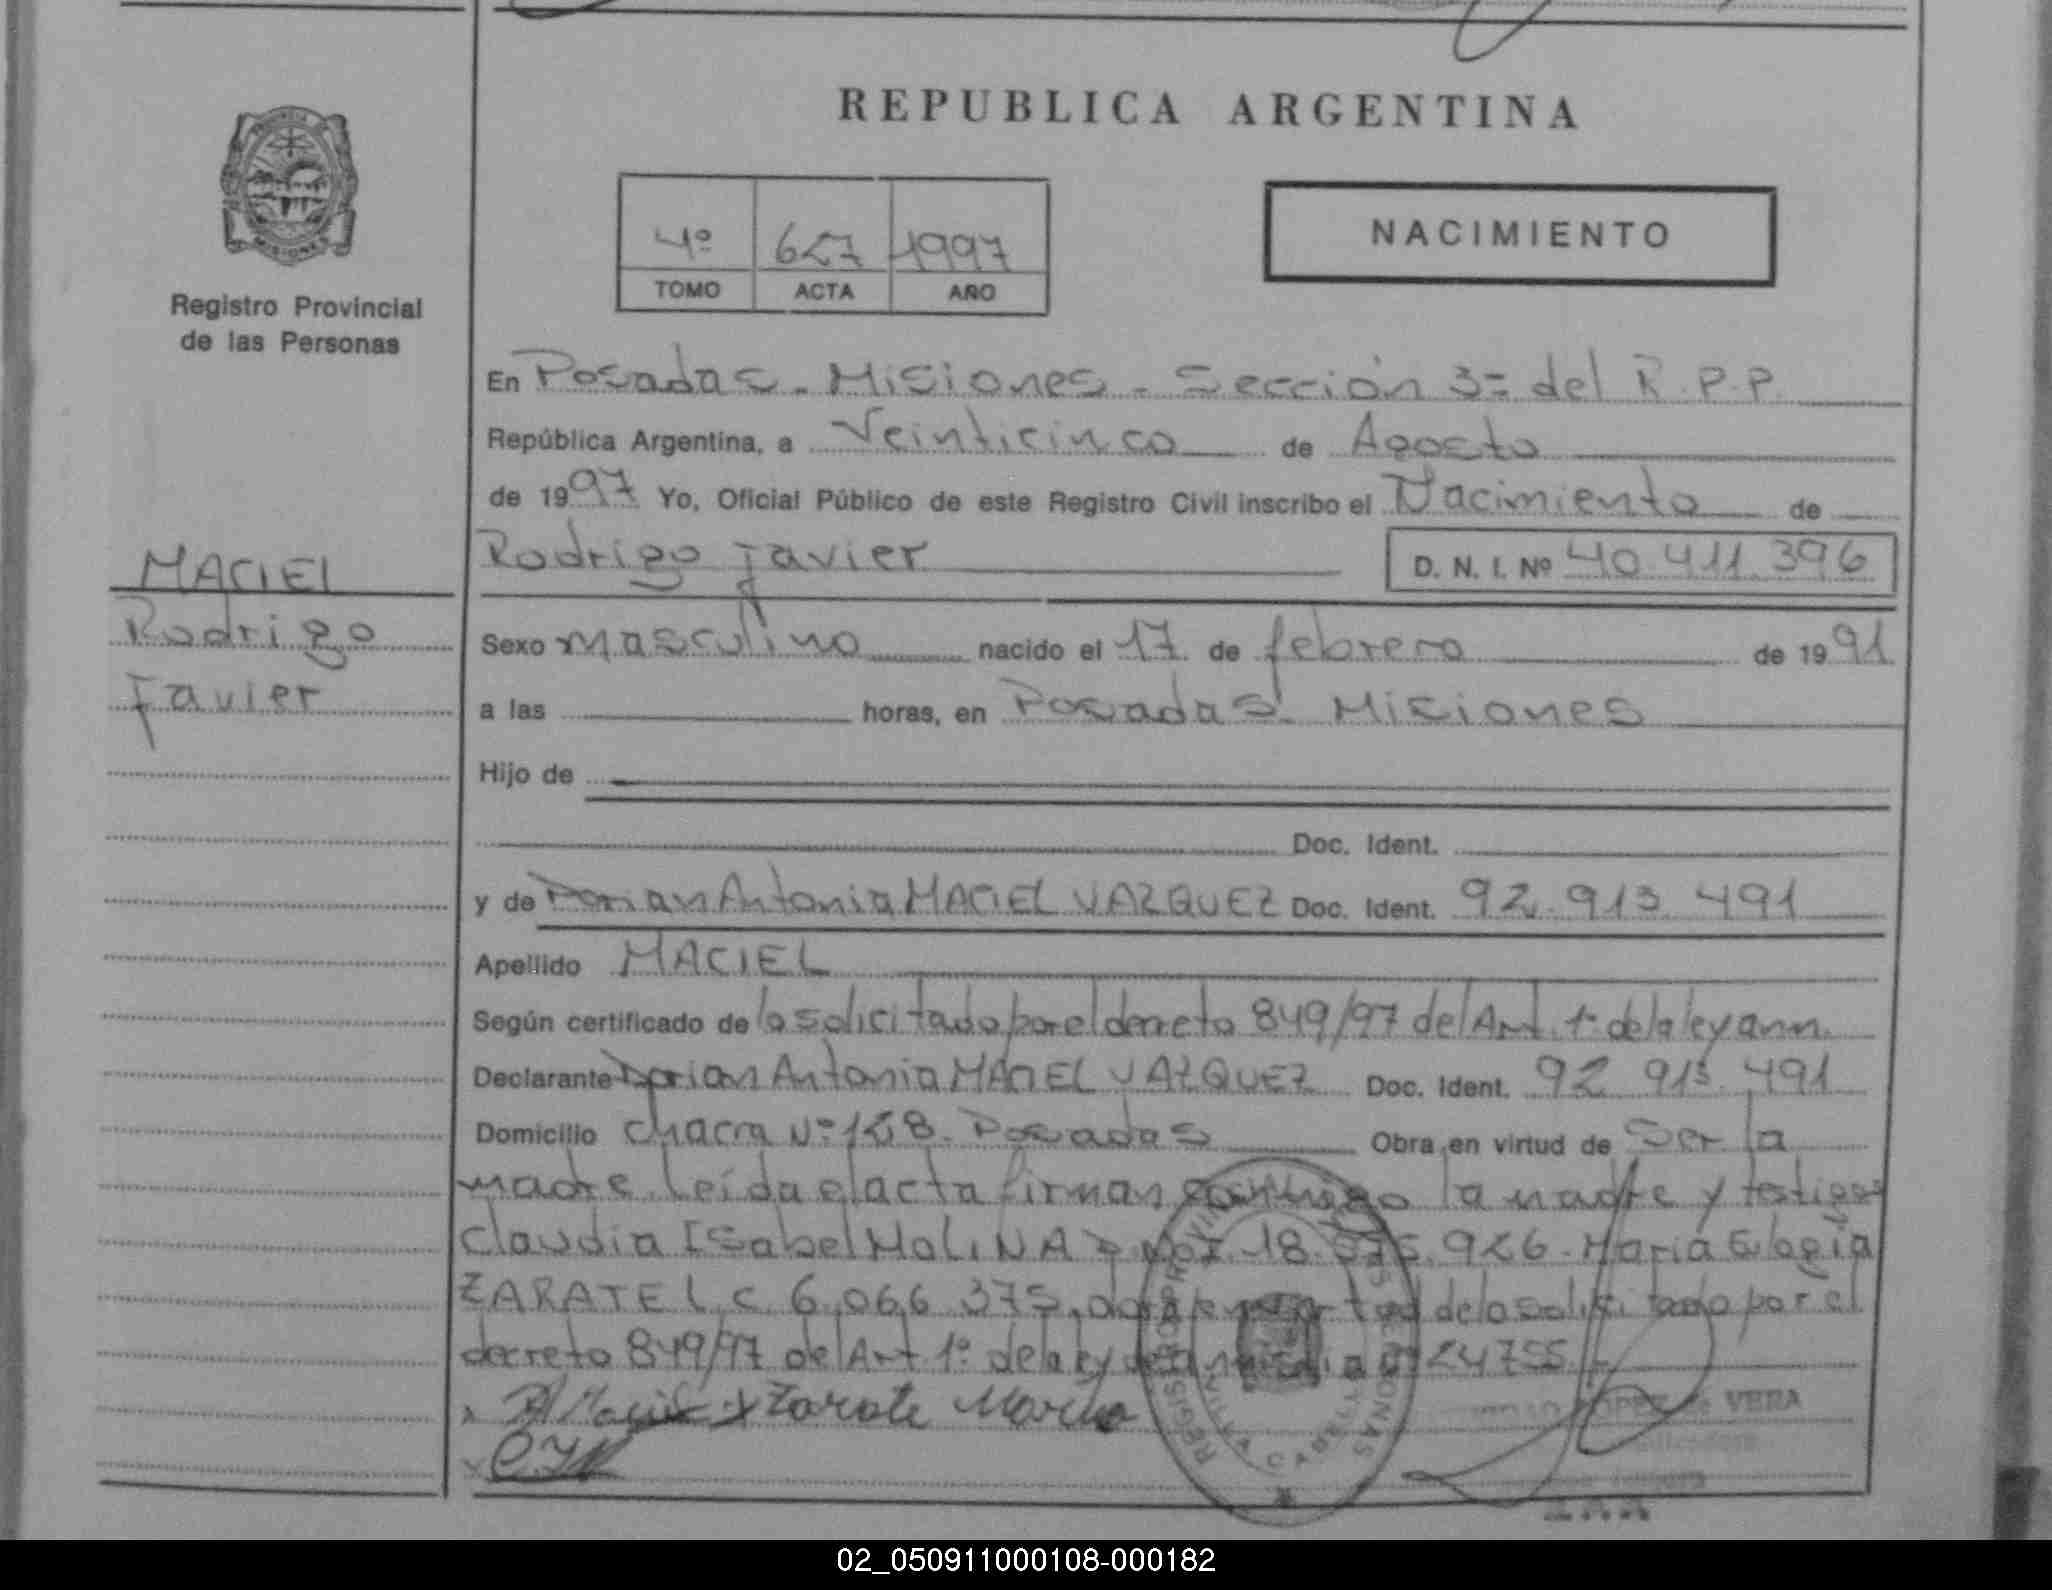 REPUBLICA ARGENTINA
4º 627 1997
TOMO ACTA AÑO
NACIMIENTO
Registro Provincial
de las Personas
MACIEL
Rodrigo
Javier
En Posadas - Misiones - Sección 3= del R.P.P.
República Argentina, a Veinticinco de Agosto
de 1997 Yo, Oficial Público de este Registro Civil inscribo el Nacimiento de
Rodrigo Javier D. N. I. Nº 40.411.396
Sexo masculino nacido el 17 de febrero de 1991
a las horas, en Posadas. Misiones
Hijo de
Doc. Ident.
y de Antonia MACIEL VAZQUEZ Doc. Ident. 92.913.491
Apellido MACIEL
Según certificado de lo solicitado por el decreto 849/97 del Art. 1º de la ley amn.
Declarante Antonia MACIEL VAZQUEZ Doc. Ident. 92 913.491
Domicilio chacra Nº 128. Posadas Obra en virtud de Ser la
madre. Leída el acta firman conmigo la madre y testigos
Claudia Isabel MOLINA 18. 926. Maria Eulogia
ZARATE L.C. 6.066.375, de lo solicitado por el
decreto 849/97 del Art 1º de la ley de amnistia nº 24755.
Zarate Maria
VERA
02_050911000108-000182